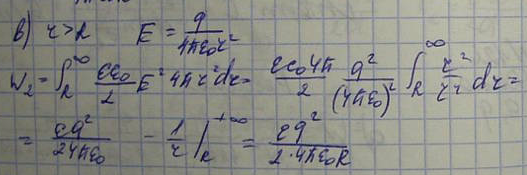 в) r>R E = q/4πεε₀r²
W₂ = ∫_R^∞ εε₀/2 E² 4πr²dr = εε₀4π/2 q²/(4πε₀)² ∫_R^∞ r²/r⁴ dr =
= εq²/2 4πε₀ - 1/r |_R^+∞ = εq²/2·4πε₀R